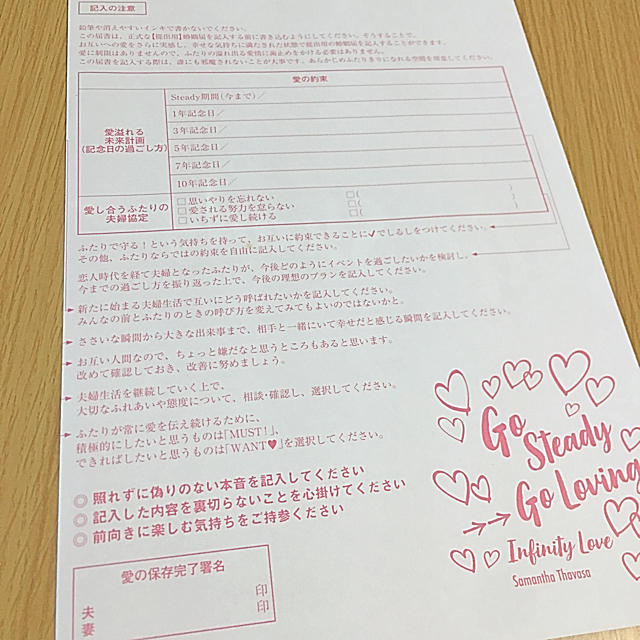 記入の注意
鉛筆や消えやすいインキで書かないでください。
この届書は、正式な【提出用】婚姻届を記入する前に書き込むようにしてください。そうすることで、
お互いへの愛をさらに実感し、幸せな気持ちに満たされた状態で提出用の婚姻届を記入することができます。
愛に制限はありませんので、ふたりの溢れ出る愛情に歯止めをかける必要はありません。
この届書を記入する際は、誰にも邪魔されないことが大事です。あらかじめふたりきりになれる空間を用意してください。
愛の約束
愛溢れる
未来計画
(記念日の過ごし方)
Steady期間(今まで)/
1年記念日/
3年記念日/
5年記念日/
7年記念日/
10年記念日/
愛し合うふたりの
夫婦協定
□思いやりを忘れない □( )
□愛される努力を怠らない □( )
□いちずに愛し続ける □( )
ふたりで守る!という気持ちを持って、お互いに約束できることに✓でしるしをつけてください。
その他、ふたりならではの約束を自由に記入してください。
恋人時代を経て夫婦となったふたりが、今後どのようにイベントを過ごしたいかを検討し、
今までの過ごし方を振り返った上で、今後の理想のプランを記入してください。
新たに始まる夫婦生活で互いにどう呼ばれたいかを記入してください。
みんなの前とふたりのときの呼び方を変えてみてもよいのではないかと。
ささいな瞬間から大きな出来事まで、相手と一緒にいて幸せだと感じる瞬間を記入してください。
お互い人間なので、ちょっと嫌だなと思うところもあると思います。
改めて確認しておき、改善に努めましょう。
夫婦生活を継続していく上で、
大切なふれあいや態度について、相談・確認し、選択してください。
ふたりが常に愛を伝え続けるために、
積極的にしたいと思うものは「MUST!」、
できればしたいと思うものは「WANT♥」を選択してください。
◎ 照れずに偽りのない本音を記入してください
◎ 記入した内容を裏切らないことを心掛けてください
◎ 前向きに楽しむ気持ちをご持参ください
愛の保存完了署名
夫 印
妻 印
Go
Steady
Go Loving
Infinity Love
Samantha Thavasa